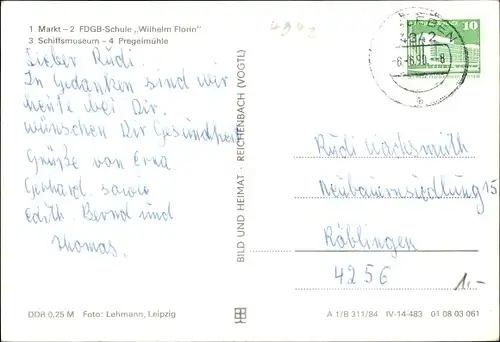 1 Markt – 2 FDGB-Schule „Wilhelm Florin"
3 Schiffsmuseum – 4 Pregelmühle
4342
Lieber Rudi.
In Gedanken sind wir
heute bei Dir.
wünschen Dir Gesundheit
Grüße von Erna
Gerhard sowie
Edith. Bernd und
Thomas.
BILD UND HEIMAT · REICHENBACH (VOGTL)
LEBEN
4342
-6.-6.90.-8
b
10
Rudi Wachsmuth
Neubauernsiedlung 15
Röblingen
4256
1.-
DDR 0,25 M Foto: Lehmann, Leipzig
A 1/B 311/84 IV-14-483 01 08 03 061